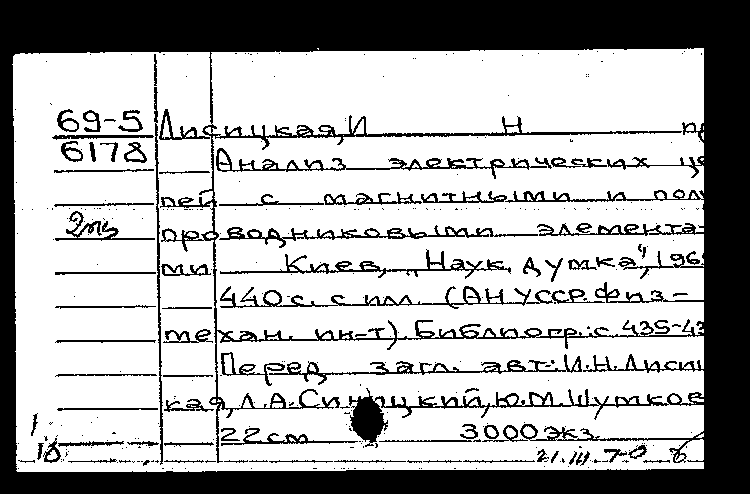 69-5 Лисицкая, И Н
6178 Анализ электрических це
пей с магнитными и полу
проводниковыми элемента-
ми Киев, „Наук. думка", 196
440 с. с илл. (АН УССР. Физ-
механ. ин-т). Библиогр.: с. 435-43
Перед загл. авт: И.Н. Лиси
кая, Л.А. Синицкий, Ю.М. Шумков
22 см 3000 экз
21.III.70